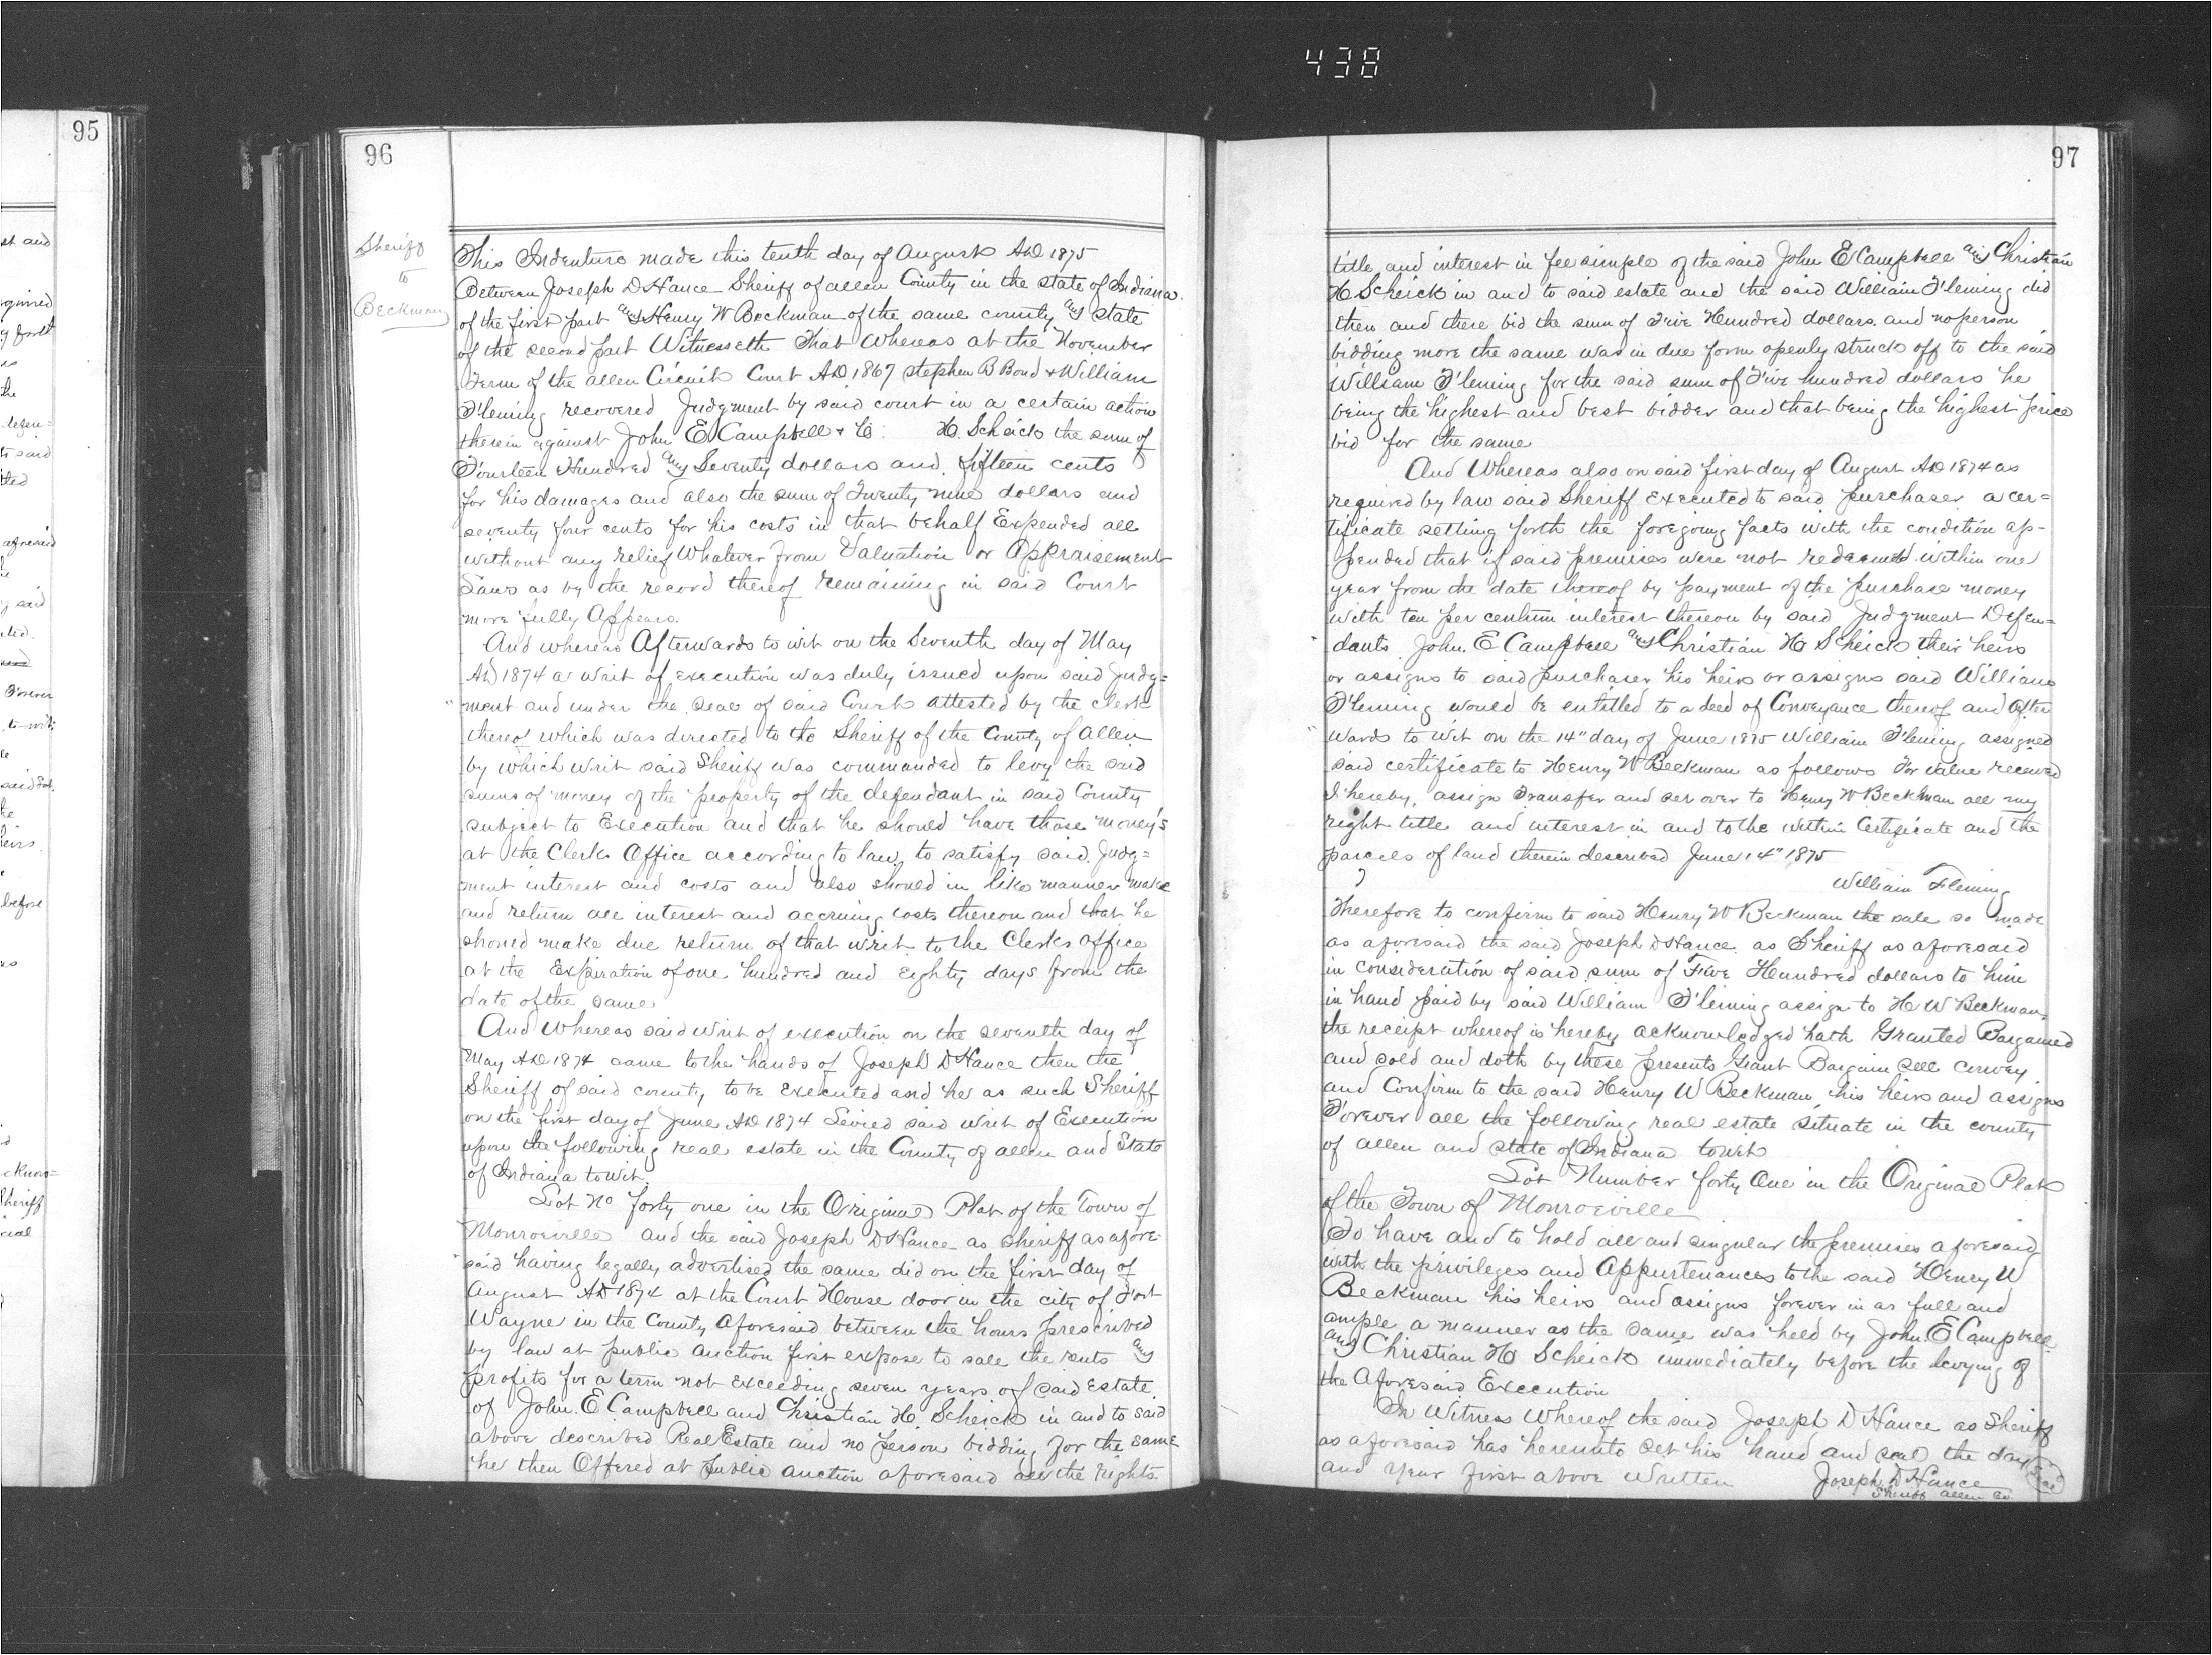 438
95
st and
quired
y forth
the
said
ited
aforesaid
y said
Forever
to-wit
said
before
Sheriff
cial
96
Sheriff
to
Beckman
This Indenture made this tenth day of August AD 1875
Between Joseph D Hance Sheriff of allen County in the state of Indiana
of the first part and Henry W Beckman of the same county and state
of the second part Witnesseth That Whereas at the November
Term of the allen Circuit Court AD 1867 Stephen B Bond & William
Fleming recovered Judgment by said court in a certain action
therein against John E Campbell & C. H. Scheick the sum of
Fourteen Hundred and Seventy dollars and fifteen cents
for his damages and also the sum of Twenty nine dollars and
seventy four cents for his costs in that behalf Expended all
without any relief Whatever from Valuation or Appraisement
Laws as by the record thereof remaining in said Court
more fully Appears.
And whereas Afterwards to wit on the Seventh day of May
AD 1874 a writ of execution was duly issued upon said Judg=
"ment and under the seal of said Court attested by the clerk
thereof which was directed to the Sheriff of the County of Allen
by which writ said Sheriff was commanded to levy the said
sums of money of the property of the defendant in said County
subject to Execution and that he should have those money's
at the Clerks Office according to law to satisfy said Judg=
ment interest and costs and also should in like manner make
and return all interest and accruing costs thereon and that he
should make due return of that writ to the Clerks office
at the Expiration of one hundred and Eighty days from the
date of the same
And Whereas said writ of execution on the seventh day of
May AD 1874 came to the hands of Joseph D Hance then the
Sheriff of said county to be Executed and he as such Sheriff
on the first day of June AD 1874 Levied said writ of Execution
upon the following real estate in the County of allen and State
of Indiana to Wit.
Lot No forty one in the Original Plat of the Town of
Monroeville and the said Joseph D Hance as sheriff as afore-
"said having legally advertised the same did on the first day of
August AD 1874 at the Court House door in the city of Fort
Wayne in the County Aforesaid between the hours prescribed
by law at public auction first expose to sale the rents and
profits for a term not exceeding seven years of said Estate
of John E Campbell and Christian H. Scheick in and to said
above described Real Estate and no person bidding for the same
he then Offered at Public auction aforesaid all the rights
97
title and interest in fee simple of the said John E Campbell and Christian
H Scheick in and to said estate and the said William Fleming did
then and there bid the sum of Five Hundred dollars and no person
bidding more the same was in due form openly struck off to the said
William Fleming for the said sum of Five hundred dollars he
being the highest and best bidder and that being the highest price
bid for the same
And Whereas also on said first day of August AD 1874 as
required by law said Sheriff executed to said purchaser a cer=
tificate setting forth the foregoing facts with the condition ap-
pended that if said premises were not redeemed within one
year from the date thereof by payment of the purchase money
with ten per centum interest thereon by said Judgment Defen=
"dants John E Campbell and Christian H Scheick their heirs
or assigns to said purchaser his heirs or assigns said William
Fleming would be entitled to a deed of Conveyance thereof and After
"wards to wit on the 14" day of June 1875 William Fleming assigned
said certificate to Henry W Beckman as follows For value received
I hereby assign Transfer and set over to Henry W Beckman all my
right title and interest in and to the within Certificate and the
parcels of land therein described June 14" 1875
William Fleming
Therefore to confirm to said Henry W Beckman the sale so made
as aforesaid the said Joseph D Hance as Sheriff as aforesaid
in consideration of said sum of Five Hundred dollars to him
in hand paid by said William Fleming assign to H W Beckman
the receipt whereof is hereby acknowledged hath Granted Bargained
and sold and doth by these presents Grant Bargain sell convey
and Confirm to the said Henry W Beckman his heirs and assigns
Forever all the following real estate situate in the county
of allen and state of Indiana to wit
Lot Number forty One in the Original Plat
of the Town of Monroeville
To have and to hold all and singular the premises aforesaid
with the privileges and Appurtenances to the said Henry W
Beckman his heirs and assigns forever in as full and
ample a manner as the same was held by John E Campbell
and Christian H Scheick immediately before the levying of
the Aforesaid Execution
In Witness Whereof the said Joseph D Hance as Sheriff
as aforesaid has hereunto set his hand and seal the day
and year first above Written Joseph D Hance Seal
Sheriff allen Co